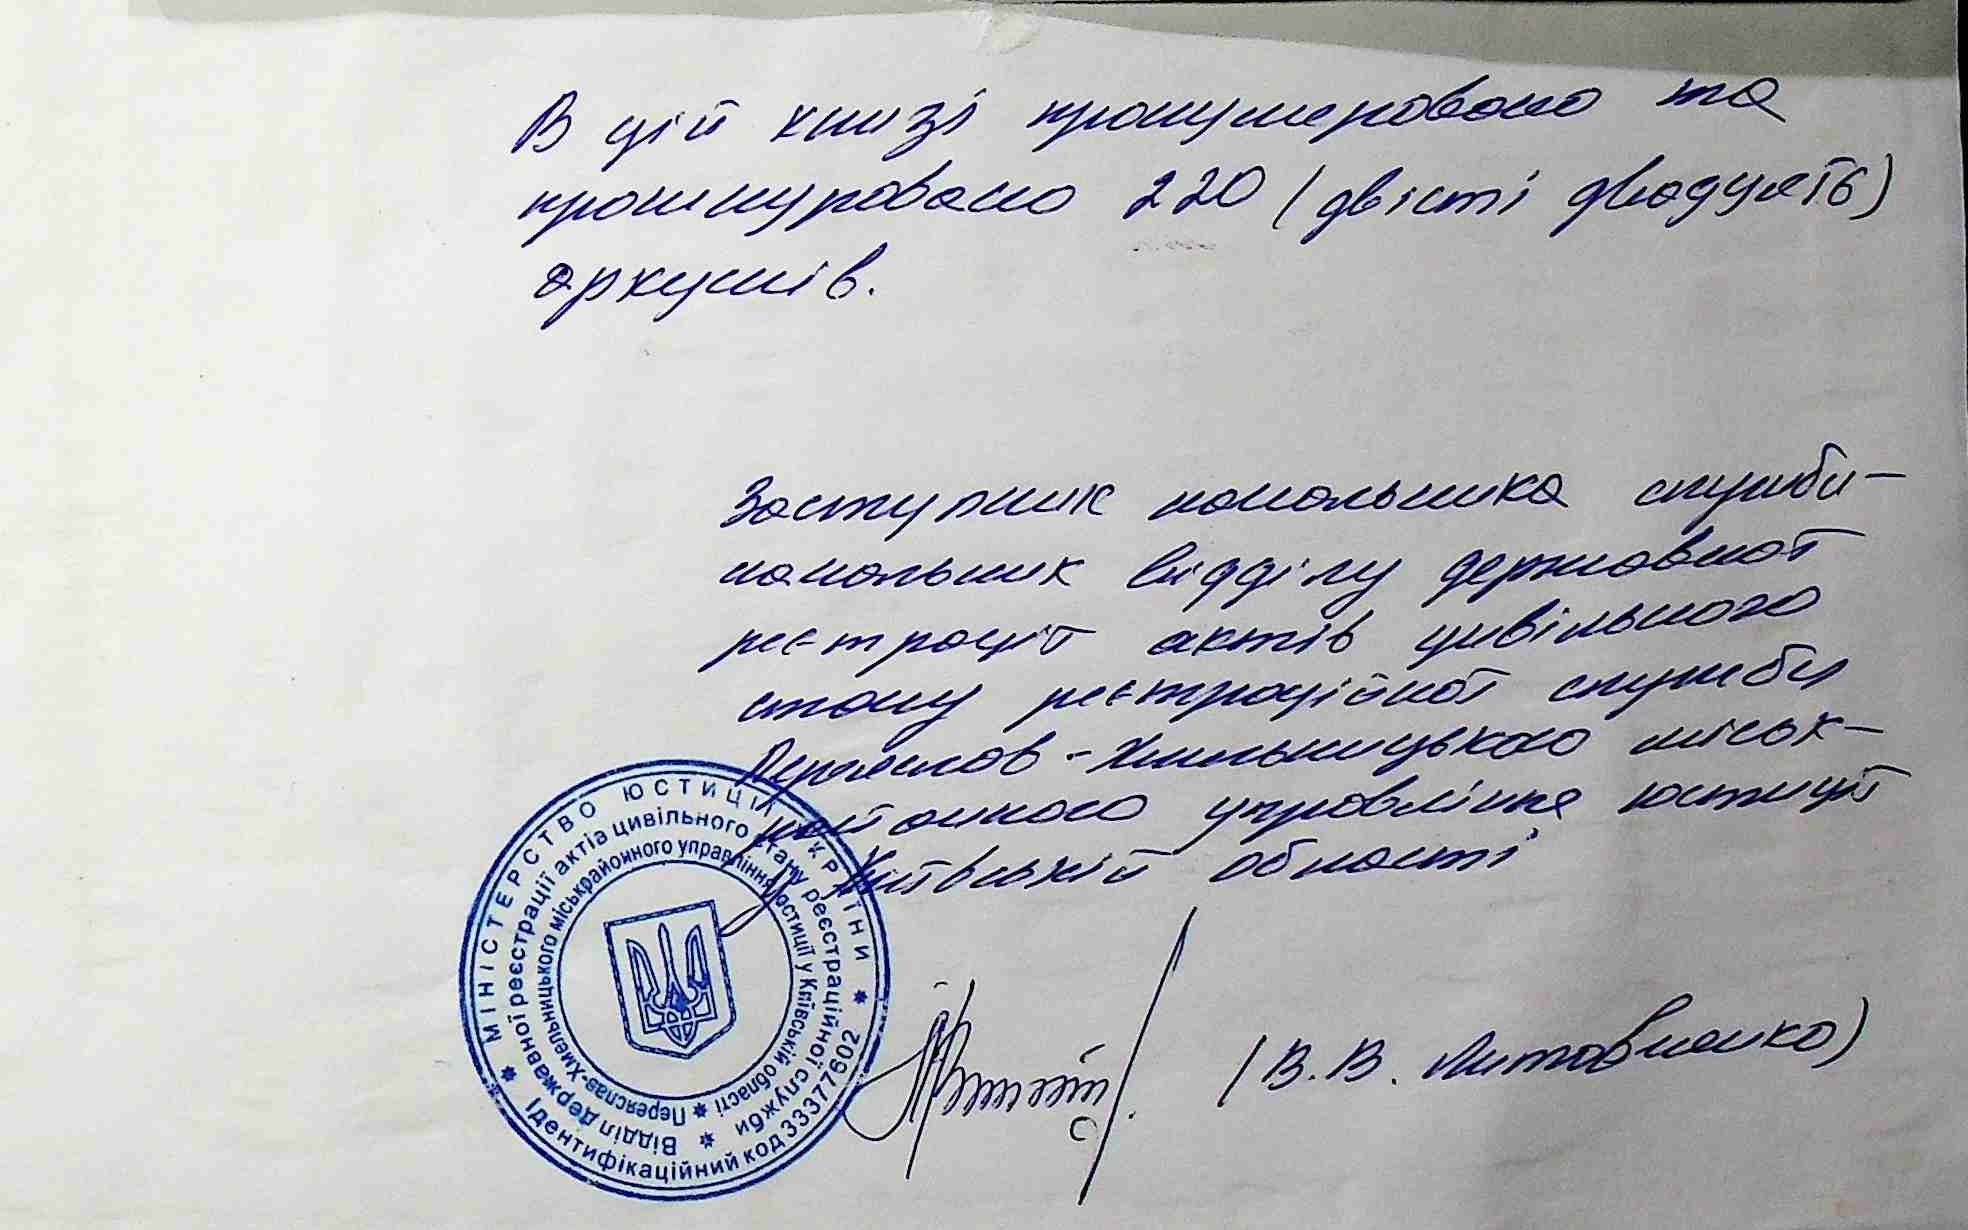 В цій книзі пронумеровано та
прошнуровано 220 (двісті двадцять)
аркушів.
Заступник начальника служби-
начальник відділу державної
реєстрації актів цивільного
стану реєстраційної служби
Переяслав-Хмельницького міськ-
районного управління юстиції
Київській області
(В.В. Литовченко)
* МІНІСТЕРСТВО ЮСТИЦІЇ УКРАЇНИ *
Ідентифікаційний код 33377602
* Відділ державної реєстрації актів цивільного стану реєстраційної служби
* Переяслав-Хмельницького міськрайонного управління юстиції у Київській області